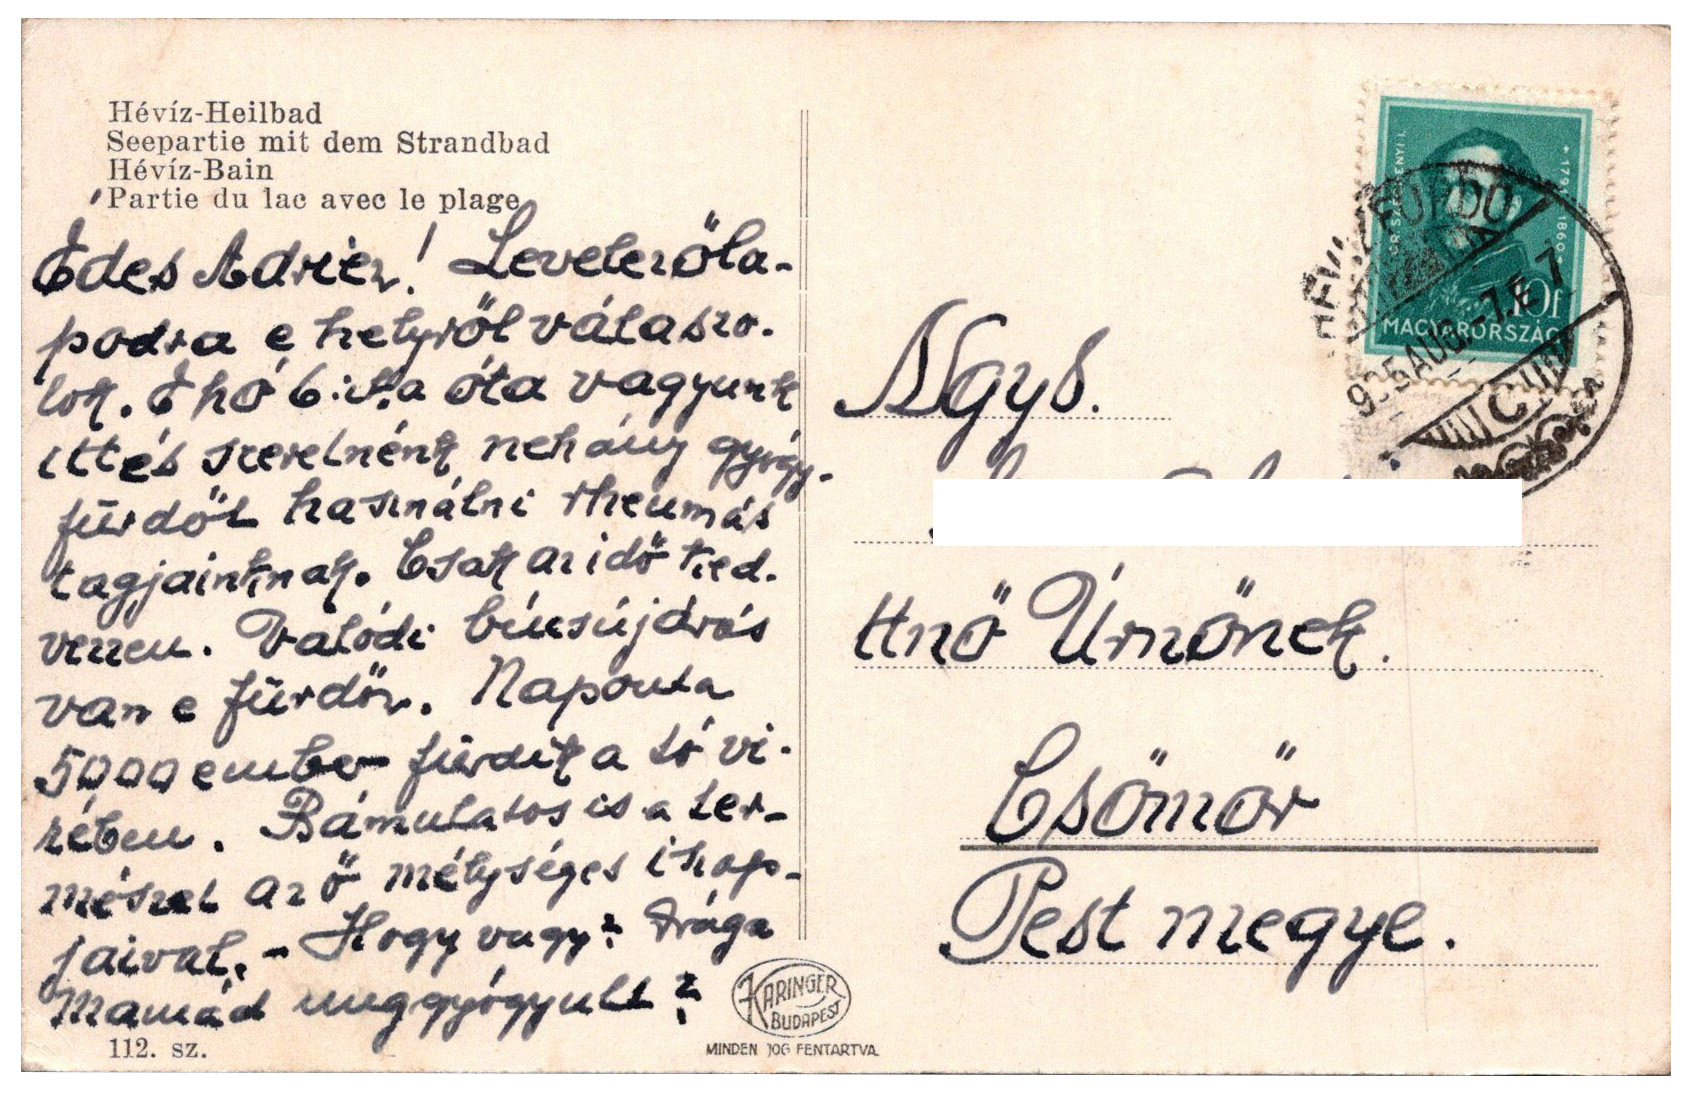 Hévíz-Heilbad
Seepartie mit dem Strandbad
Hévíz-Bain
Partie du lac avec le plage
Édes Adrien! Levelezőla-
podra e helyről válaszo-
lok. E hó 6.-ka óta vagyunk
itt és szeretnénk nehány gyógy-
fürdőt használni rheumás
tagjainknak. Csak az idő ked-
vezzen. Valódi búcsújárás
van e fürdőn. Naponta
5000 ember fürdik a tó vi-
zében. Bámulatos is a ter-
mészet az ő mélységes
jaival. - Hogy vagy? Drága
Mamád meggyógyult?
112. sz.
KARINGER
BUDAPEST
MINDEN JOG FENTARTVA
GR. SZÉCHENYI I.
1791 1860
10f
MAGYARORSZÁG
HÉVIZFÜRDŐ
935 AUG. -7. E 7
Ngys.
ttnő Úrnőnek.
Csömör
Pest megye.